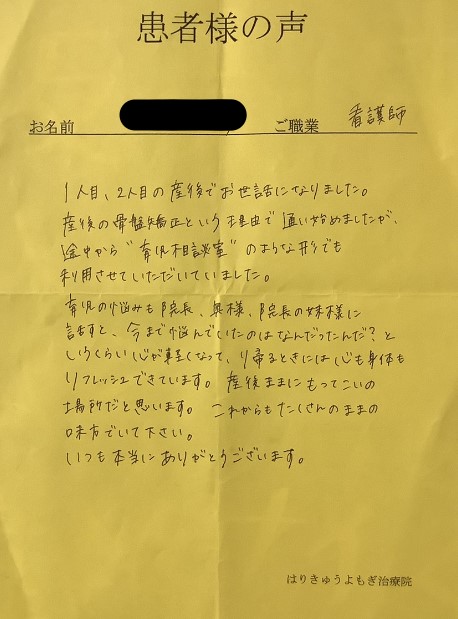 患者様の声
お名前 ご職業 看護師
1人目、2人目の産後でお世話になりました。
産後の骨盤矯正という理由で通い始めましたが、
途中から"育児相談室"のような形でも
利用させていただいていました。
育児の悩みも院長、奥様、院長の妹様に
話すと、今まで悩んでいたのはなんだったんだ?と
いうくらい心が軽くなって、帰るときには心も身体も
リフレッシュできています。産後ままにもってこいの
場所だと思います。これからもたくさんのままの
味方でいて下さい。
いつも本当にありがとうございます。
はりきゅうよもぎ治療院